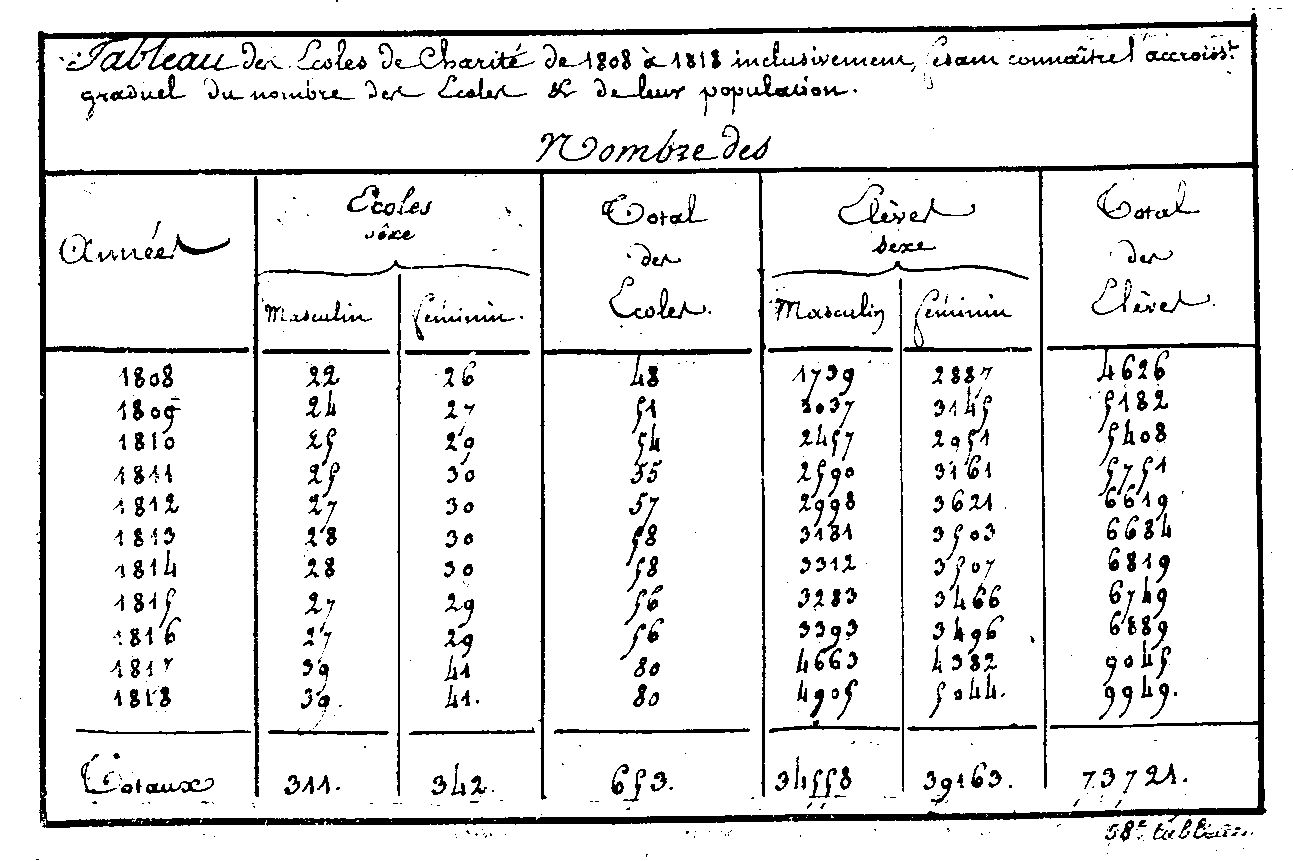 Tableau des Ecoles de Charité de 1808 à 1818 inclusivement, fesant connaître l'accroisst
graduel du nombre des Ecoles & de leur population.
Nombre des
Années
Ecoles
sèxe
Masculin
féminin.
Total
des
Ecoles.
Elèves
sexe
Masculin
féminin
Total
des
Elèves.
1808 22 26 48 1739 2887 4626
1809 24 27 51 2037 3145 5182
1810 25 29 54 2457 2951 5408
1811 25 30 55 2590 3161 5751
1812 27 30 57 2998 3621 6619
1813 28 30 58 3181 3503 6684
1814 28 30 58 3312 3507 6819
1815 27 29 56 3283 3466 6749
1816 27 29 56 3393 3496 6889
1817 39 41 80 4663 4382 9045
1818 39. 41. 80 4905 5044. 9949.
Totaux 311. 342. 653. 34558 39163. 73721.
58e tableau.